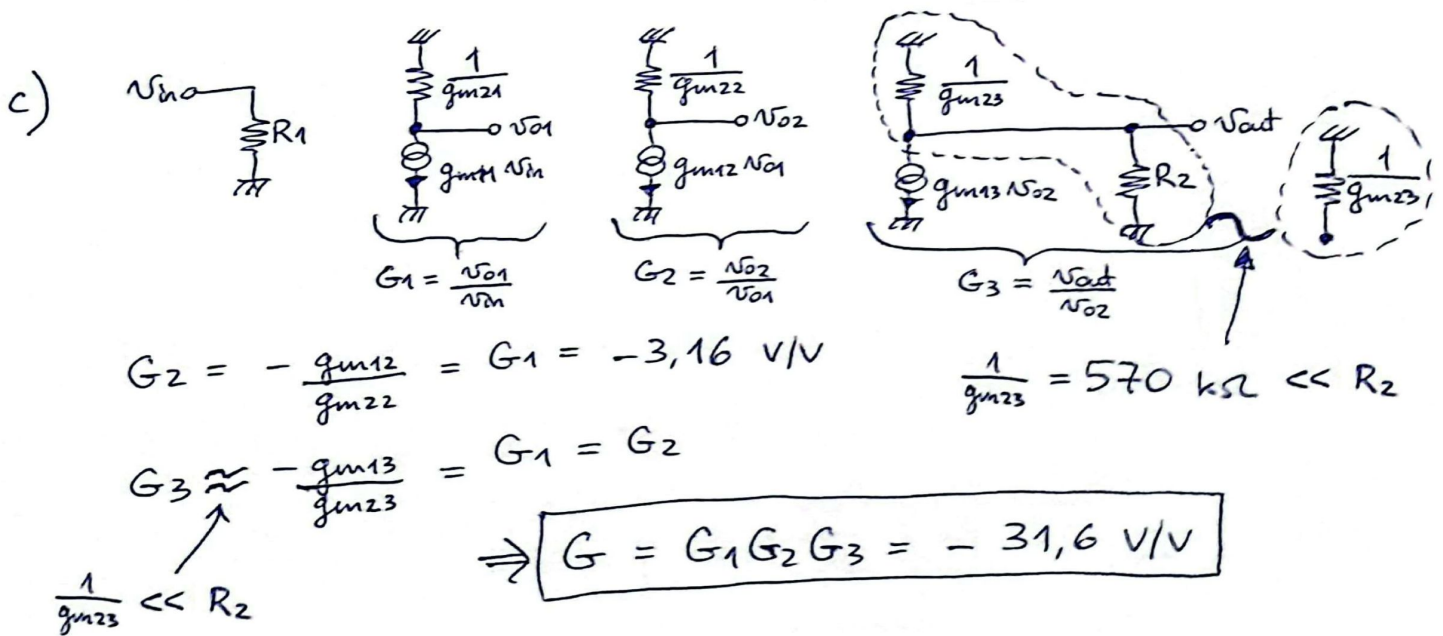 c)
vin
R1
1/gm21
vo1
gm11 vin
G1 = vo1/vin
1/gm22
vo2
gm12 vo1
G2 = vo2/vo1
1/gm23
vout
gm13 vo2
R2
G3 = vout/vo2
1/gm23
G2 = - gm12/gm22 = G1 = -3,16 V/V
1/gm23 = 570 kΩ << R2
G3 ≈ - gm13/gm23 = G1 = G2
1/gm23 << R2
⇒ G = G1 G2 G3 = - 31,6 V/V